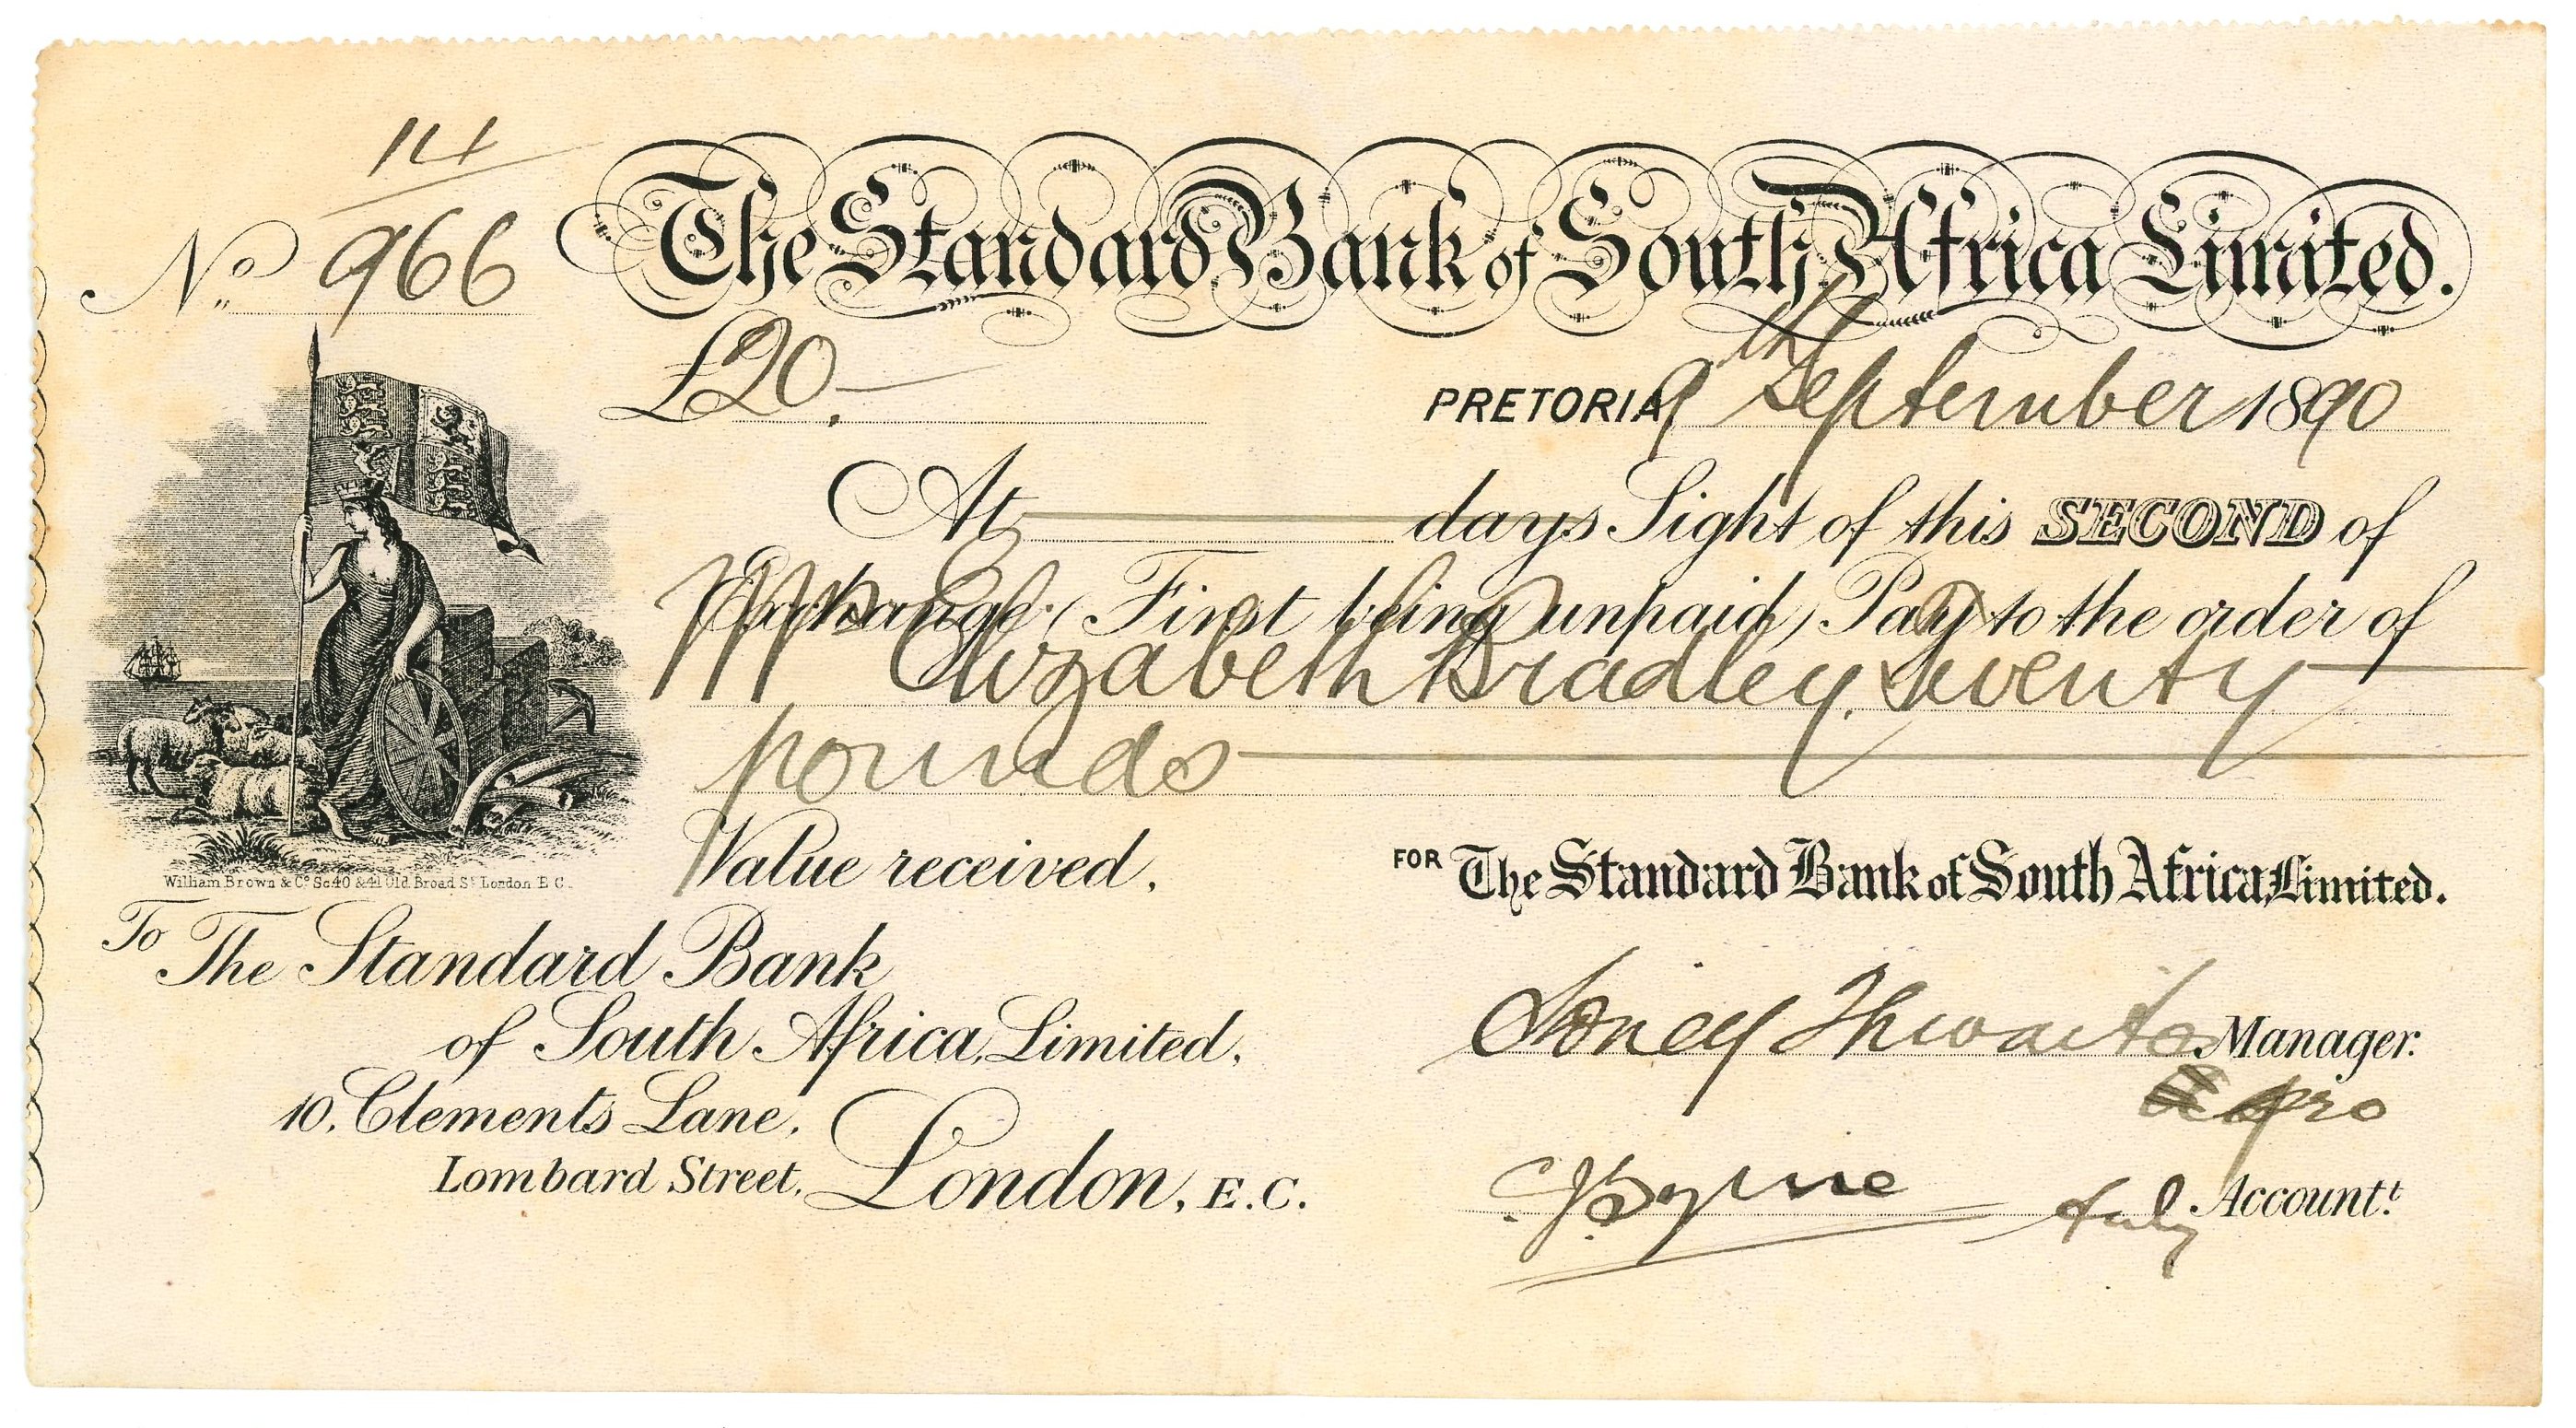 14
No. 966
The Standard Bank of South Africa Limited.
£20.—
PRETORIA 9th September 1890
At days Sight of this SECOND of
Exchange (First being unpaid) Pay to the order of
Mrs Elizabeth Bradley. Twenty
pounds
Value received.
FOR The Standard Bank of South Africa, Limited.
William Brown & Co. Sc. 40 & 41 Old Broad St. London E.C.
To The Standard Bank
of South Africa, Limited,
10, Clements Lane,
Lombard Street, London, E.C.
Sidney Thwaites Manager.
pro
C. J. Byrne Accountt.